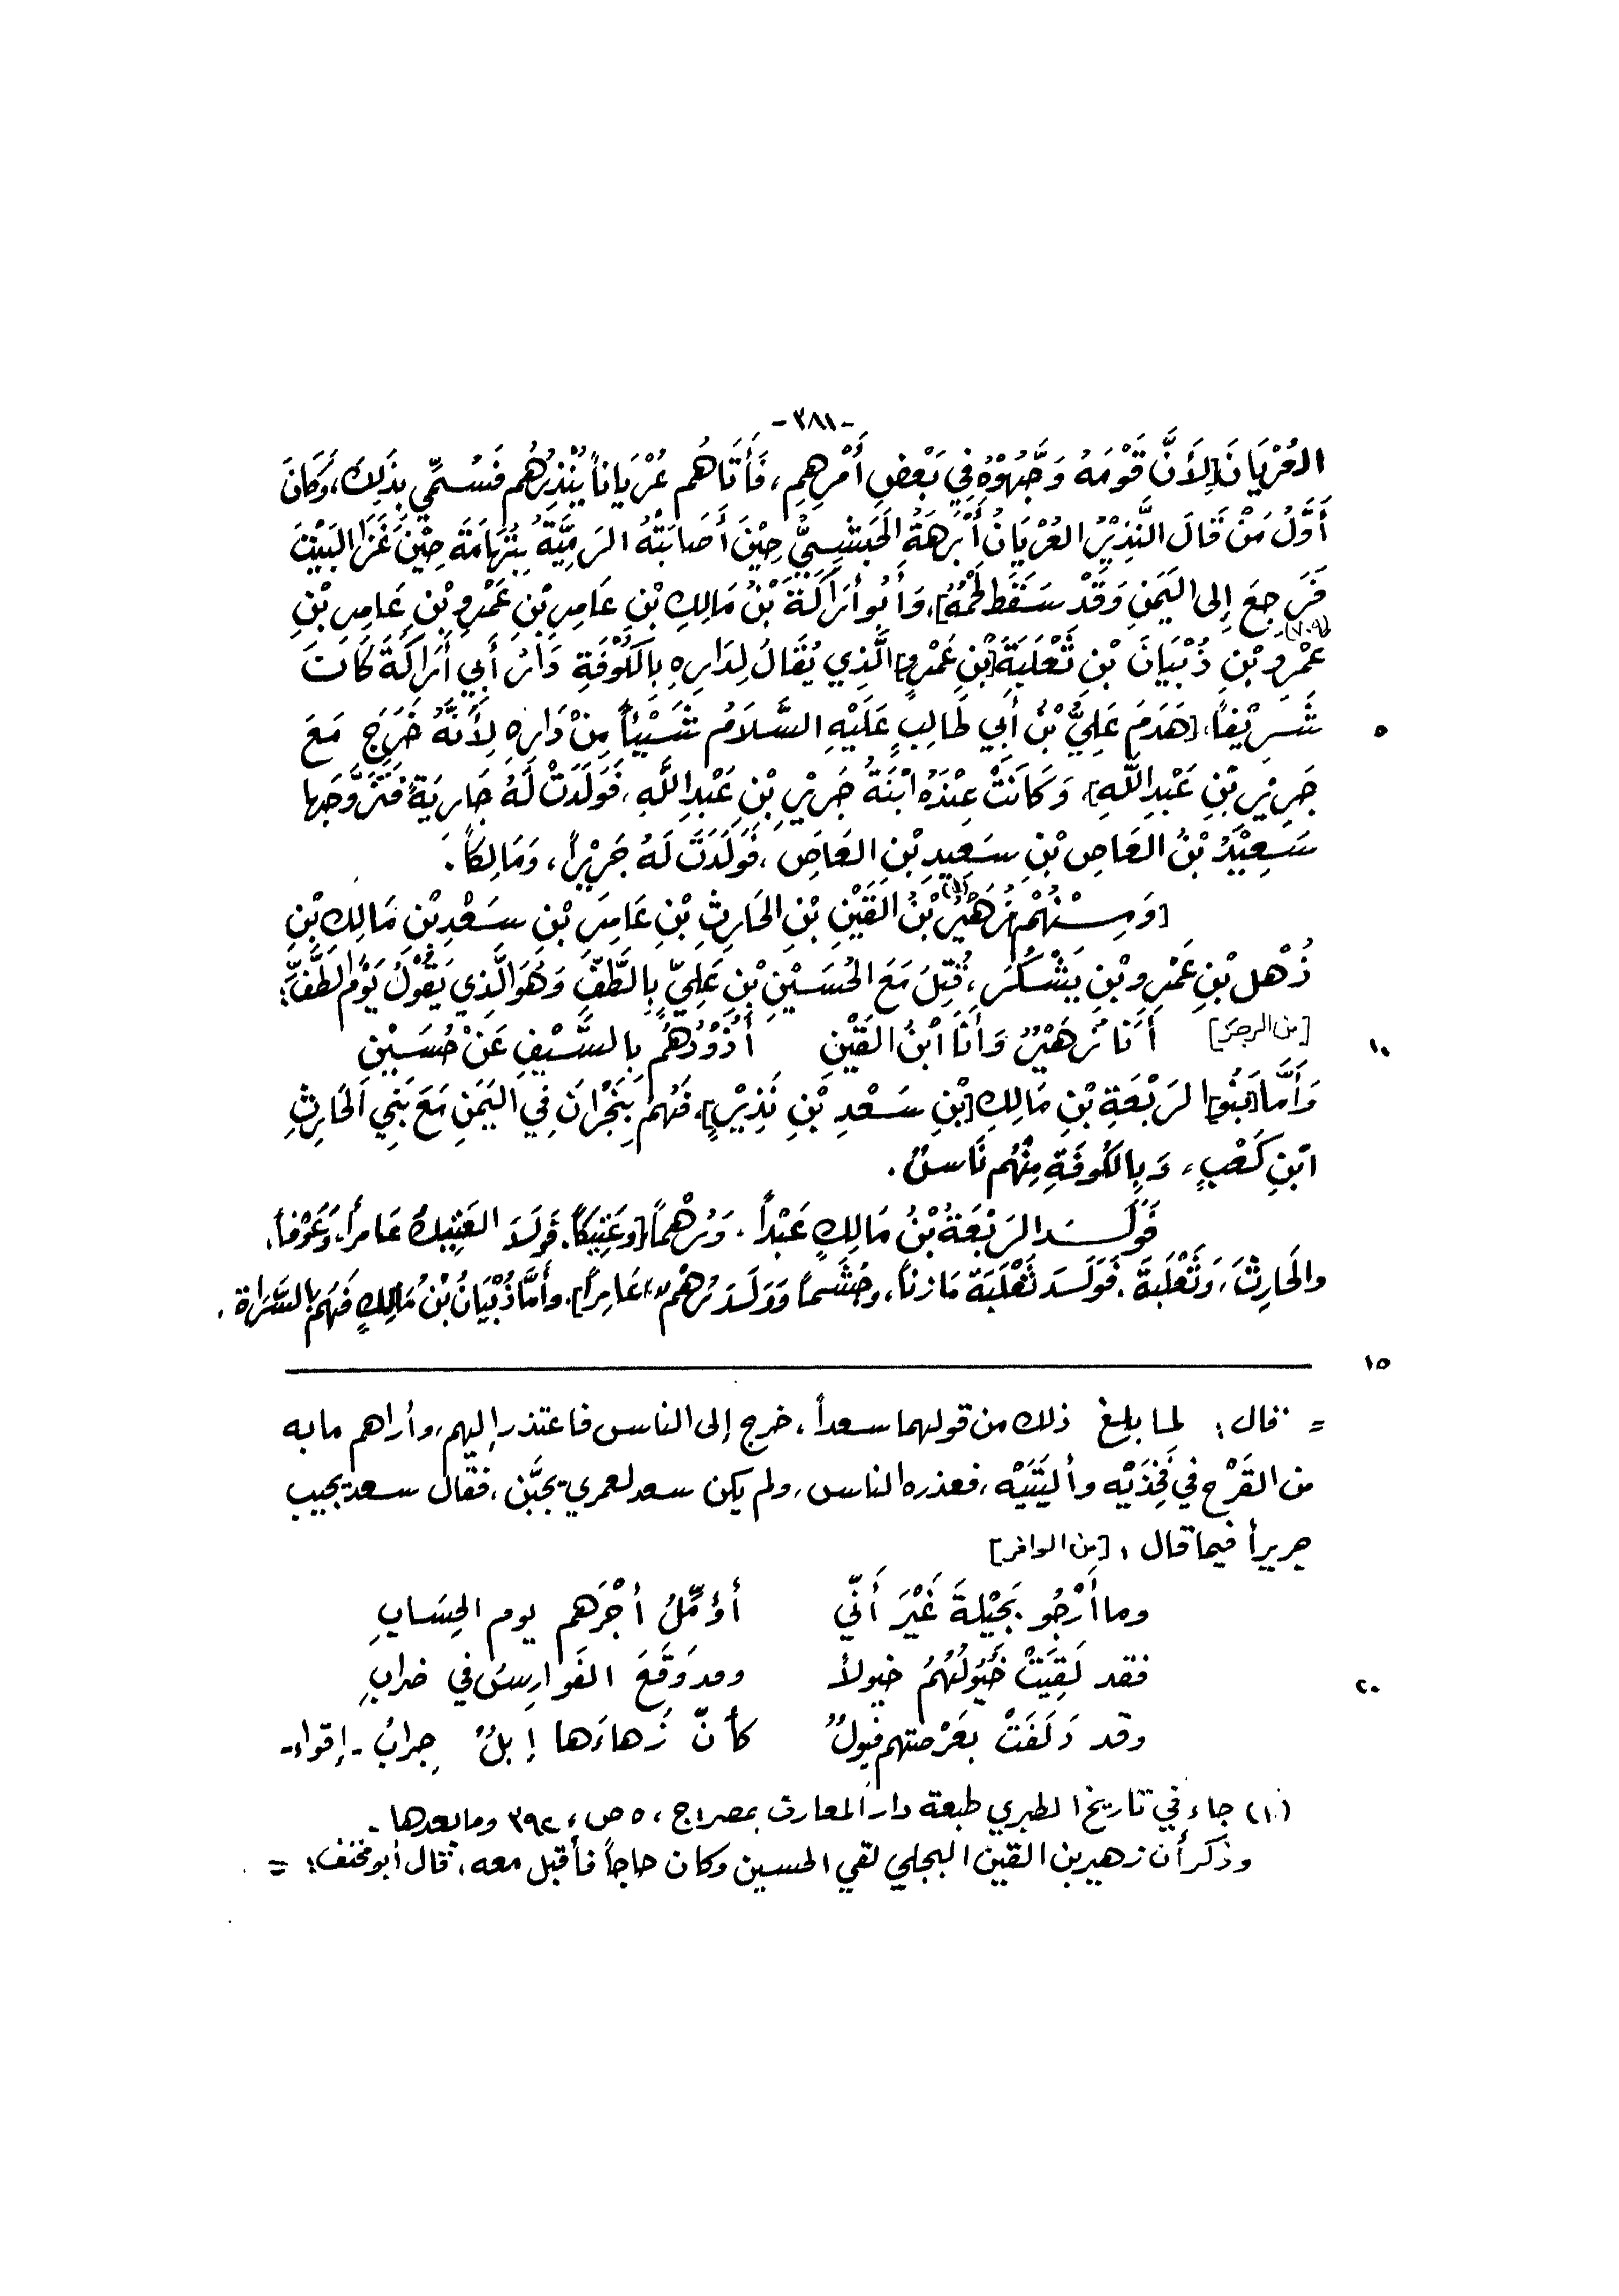 -٣٨١-
العُرْيَانَ[لِأَنَّ قَوْمَهُ وَجَّهُوْهُ فِي بَعْضِ أَمْرِهِم، فَأَتَاهُم عُرْيَاناً يُنْذِرُهُم فَسُمِّي بِذَلِكَ، وَكَانَ
أَوَّلُ مَنْ قَالَ النَّذِيْرُ العُرْيَانُ أَبْرَهَةُ الحَبَشِيُّ حِيْنَ أَصَابَتْهُ الرَمِيَّةُ بِتِهَامَةَ حِيْنَ غَزَا البَيْتَ
فَرَجِعَ إِلى اليَمَنِ وَقَدْ سَقَطَ لَحْمُهُ]، وَأَبُو أَرَاكَةَ بْنُ مَالِكِ بْنِ عَامِرِ بْنِ عَمْرِو بْنِ عَامِرِ بْنِ
(٧٠٩)
عَمْرِو بْنِ ذُبْيَانَ بْنِ ثَعْلَبَةَ[بْنِ عَمْرٍو] الَّذِي يُقَالُ لِدَارِهِ بِالكُوْفَةِ دَارُ أَبِي أَرَاكَةَ كَانَ
شَرِيْفاً، [هَدَمَ عَلِيُّ بْنُ أَبِي طَالِبٍ عَلَيْهِ السَّلَامُ شَيْئاً مِنْ دَارِهِ لِأَنَّهُ خَرَجَ مَعَ
٥
جَرِيْرِ بْنِ عَبْدِ اللَّهِ]، وَكَانَتْ عِنْدَهُ ابْنَةُ جَرِيْرِ بْنِ عَبْدِ اللَّهِ، فَوَلَدَتْ لَهُ جَارِيَةً فَتَزَوَّجَها
سَعِيْدُ بْنُ العَاصِ بْنِ سَعِيدِ بْنِ العَاصِ، فَوَلَدَتْ لَهُ جَرِيْراً، وَمَالِكاً.
[وَمِنْهُمْ زُهَيْرُ(١) بْنُ القَيْنِ بْنِ الحَارِثِ بْنِ عَامِرِ بْنِ سَعْدِ بْنِ مَالِكِ بْنِ
ذُهْلِ بْنِ عَمْرِو بْنِ يَشْكُرَ، قُتِلَ مَعَ الحُسَيْنِ بْنِ عَلِيٍّ بِالطَّفِّ وَهُوَ الَّذِي يَقُوْلُ يَوْمَ الطَّفِّ:
[من الرجز] أَنَا زُهَيْرٌ وَأَنَا ابْنُ القَيْنِ أَذُوْدُهُم بِالسَّيْفِ عَنْ حُسَيْنِ
١٠
وَأَمَّا [بَنُو] الرَبْعَةِ بْنِ مَالِكِ [بْنِ سَعْدِ بْنِ نَذِيْرٍ]، فَهُم بِنَجْرَانَ فِي اليَمَنِ مَعَ بَنِي الحَارِثِ
ابْنِ كَعْبٍ، وَبِالكُوفَةِ مِنْهُم نَاسٌ.
فَوَلَدَ الرَبْعَةُ بْنُ مَالِكٍ عَبْداً، وَرُهْماً [وعَتِيكاً. فَوَلَدَ العَتِيكُ عَامراً، وَعَوْفاً،
والحَارِثَ، وَثَعْلَبَةَ. فَوَلَدَ ثَعْلَبَةُ مَازناً، وجُشَماً وَوَلَدَ رُهْمٌ «» عَامِراً]. وأَمَّا ذُبْيَانُ بْنُ مَالِكٍ فَهُم بِالسَّرَاة.
١٥
= قال: لما بلغ ذلك من قولهما سعداً، خرج إلى الناس فاعتذر إليهم، وأراهم مابه
من القَرْح في فَخِذَيْه وأليَتَيْه، فعذره الناس، ولم يكن سعد لعمري يجبَّن، فقال سعد يجيب
جريراً فيما قال: [من الوافر]
وما أرْجُو بَجيْلةَ غَيْرَ أَنّي أُؤمِّلُ أجْرَهم يوم الحِسَابِ
فقد لَقِيَتْ خُيُولُهُمُ خيولاً وقد وَقَعَ الفَوارِسُ في ضرابِ
٢٠
وقد دَلَفَتْ بعَرْصتهم فيولٌ كأنّ زَهاءَها إبلٌ جِرابُ - إقواء-
(١) جاء في تاريخ الطبري طبعة دار المعارف بمصر: ج، ٥ ص، ٣٩٢ ومابعدها.
وذكر أن زهير بن القين البجلي لقي الحسين وكان حاجاً فأقبل معه، قال أبو مخنف: =